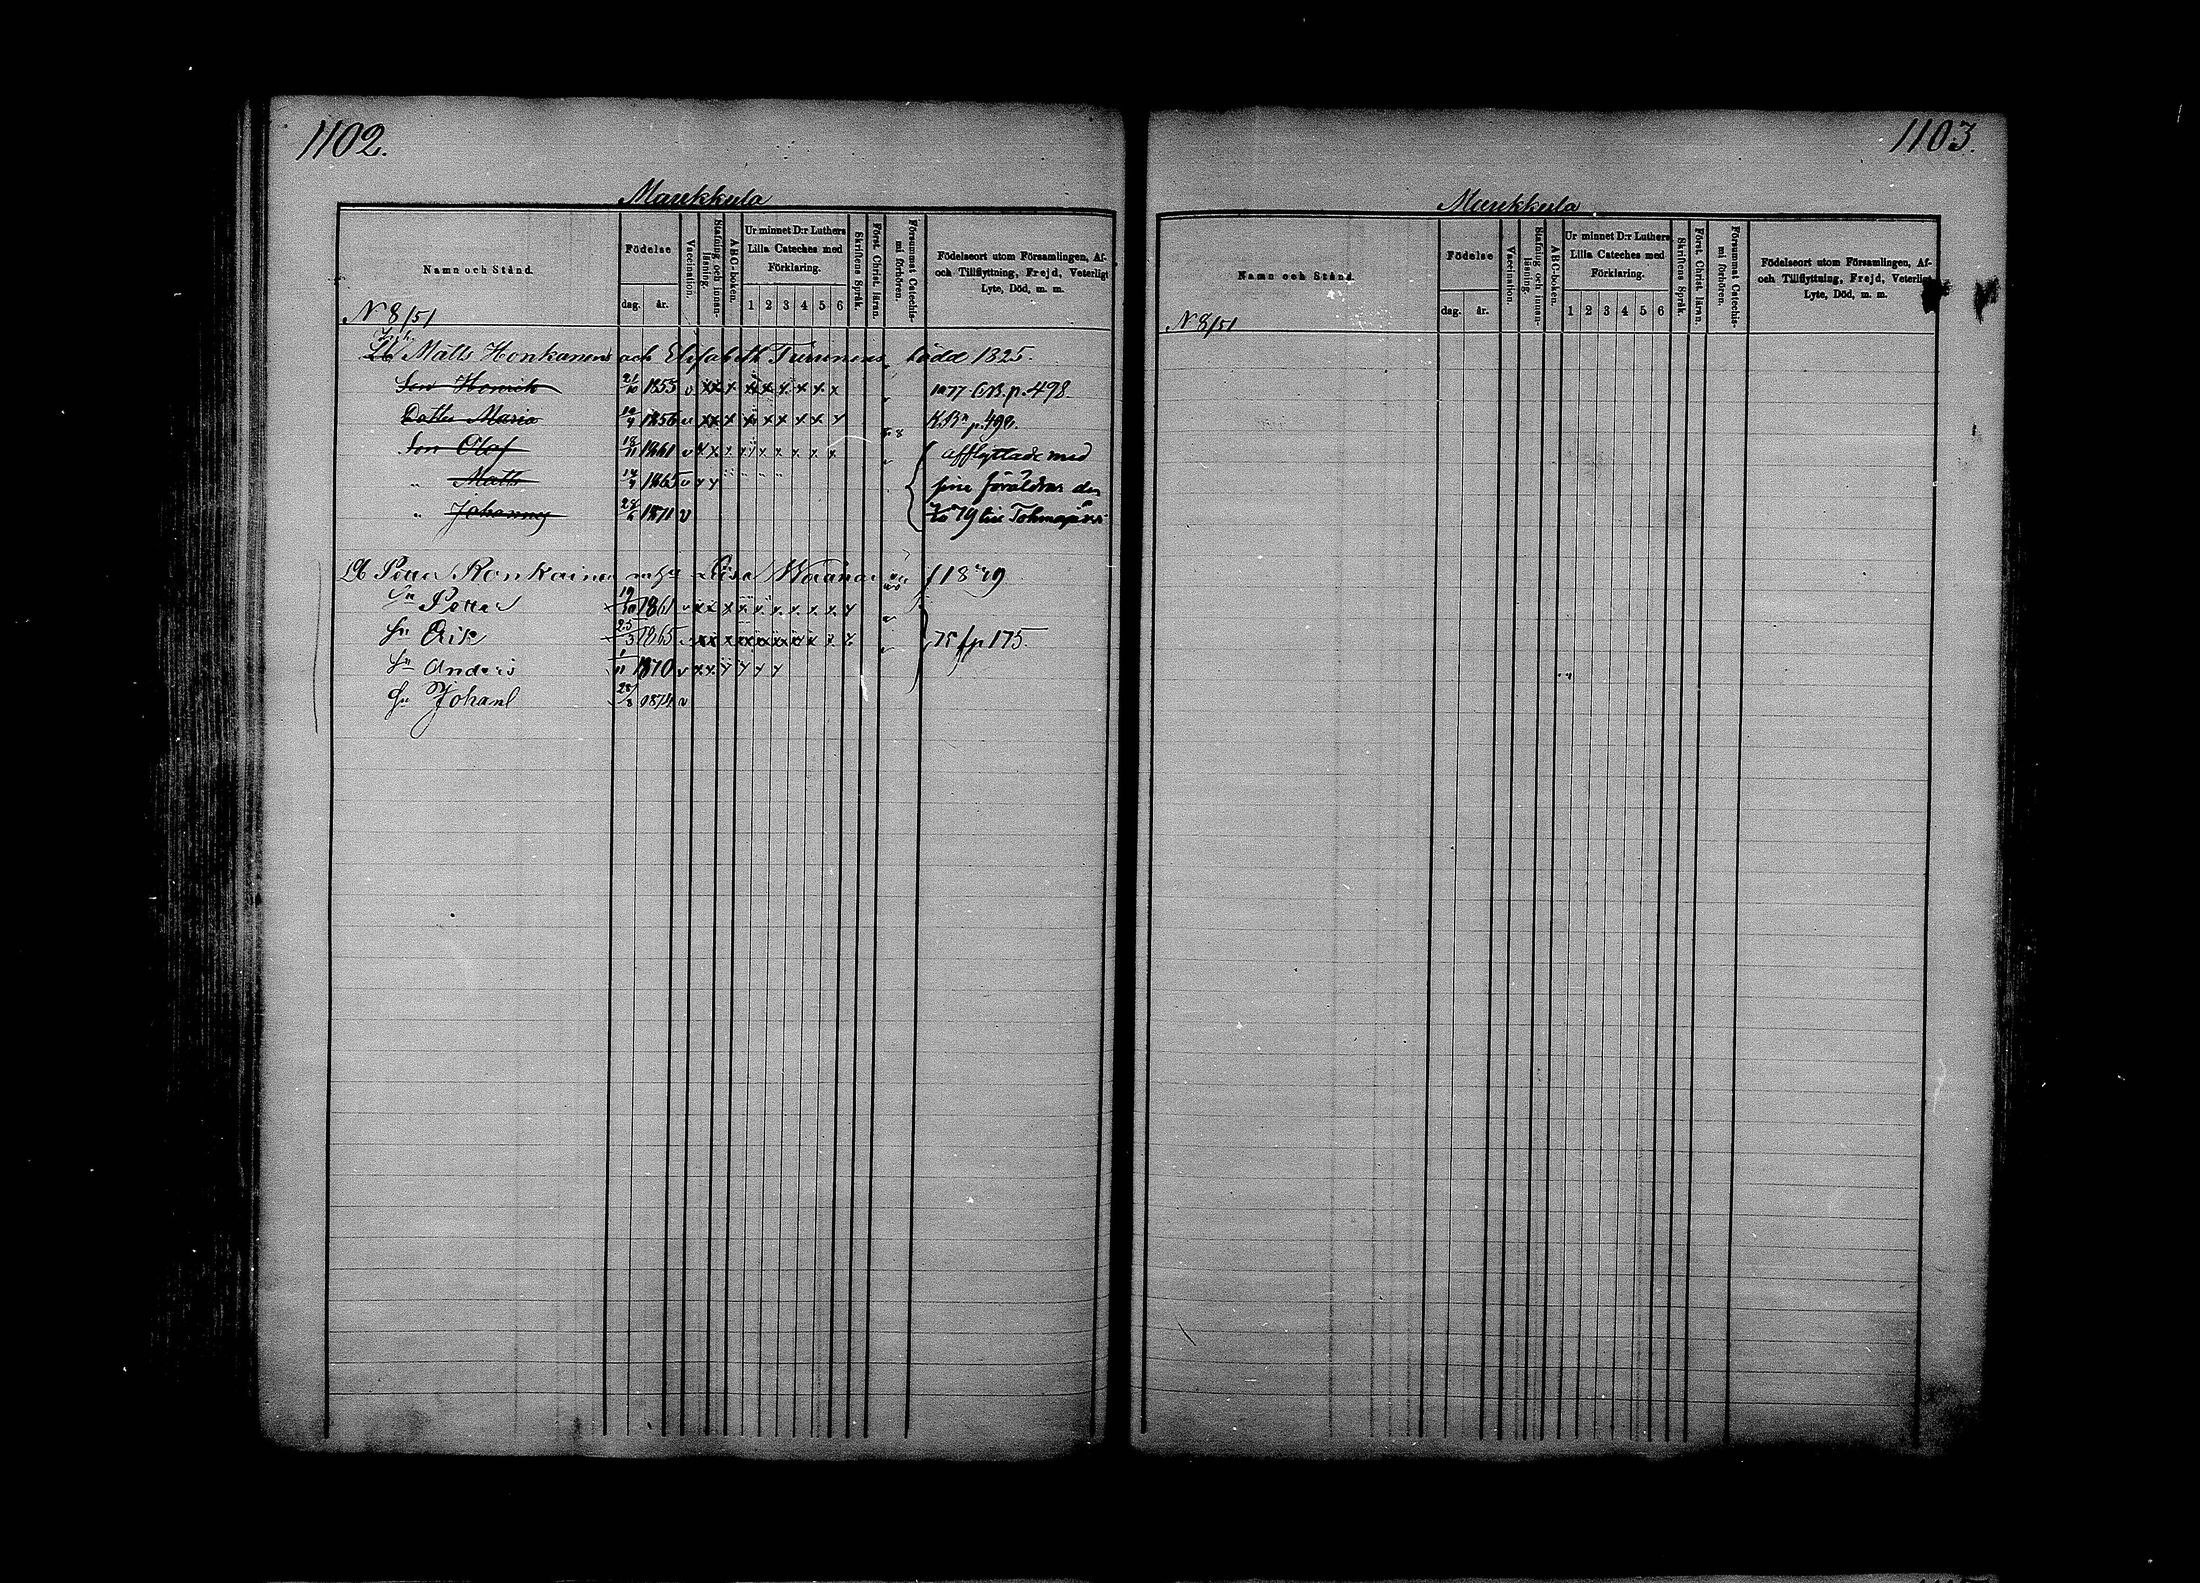 1102.
Maukkula
Namn och Stånd.
Födelse
dag.
år.
Vaccination.
Stafning och innan-
läsning.
ABC-boken.
Ur minnet D:r Luthers
Lilla Cateches med
Förklaring.
1 2 3 4 5 6
Skriftens Språk.
Först. Christ. läran.
Försummat Catechis-
mi förhören.
Födelseort utom Församlingen, Af-
och Tillflyttning, Frejd, Veterligt
Lyte, Död, m. m.
N 8/51
Lb Matts Honkanens och Elisabeth Turunens född 1825.
Son Henrik 21/10 1853 v xx x x x x x x x 1877 CB. p. 498.
Dottr Maria 1856 v xx x x x x x x x p. 498.
Son Olaf 18/11 1861 v x x x x x x x x x afflyttade med
" Matts 1865 v x x sine föräldrar den
" Johannes 1871 v 79 till Tohmajärvi
Lb Petter Ronkainen Lisa f 18 29
Sn Petter 19/10 1861 v x x x x x x x x x
Sn Erik 25/3 1865 v xx x x x x x x x 75 fp 175.
Sn Anders 1/11 1870 v x x x x x x
Sn Johan 28/8 1874 v
1103.
Maukkula
Namn och Stånd.
Födelse
dag.
år.
Vaccination.
Stafning och innan-
läsning.
ABC-boken.
Ur minnet D:r Luthers
Lilla Cateches med
Förklaring.
1 2 3 4 5 6
Skriftens Språk.
Först. Christ. läran.
Försummat Catechis-
mi förhören.
Födelseort utom Församlingen, Af-
och Tillflyttning, Frejd, Veterligt
Lyte, Död, m. m.
N 8/51